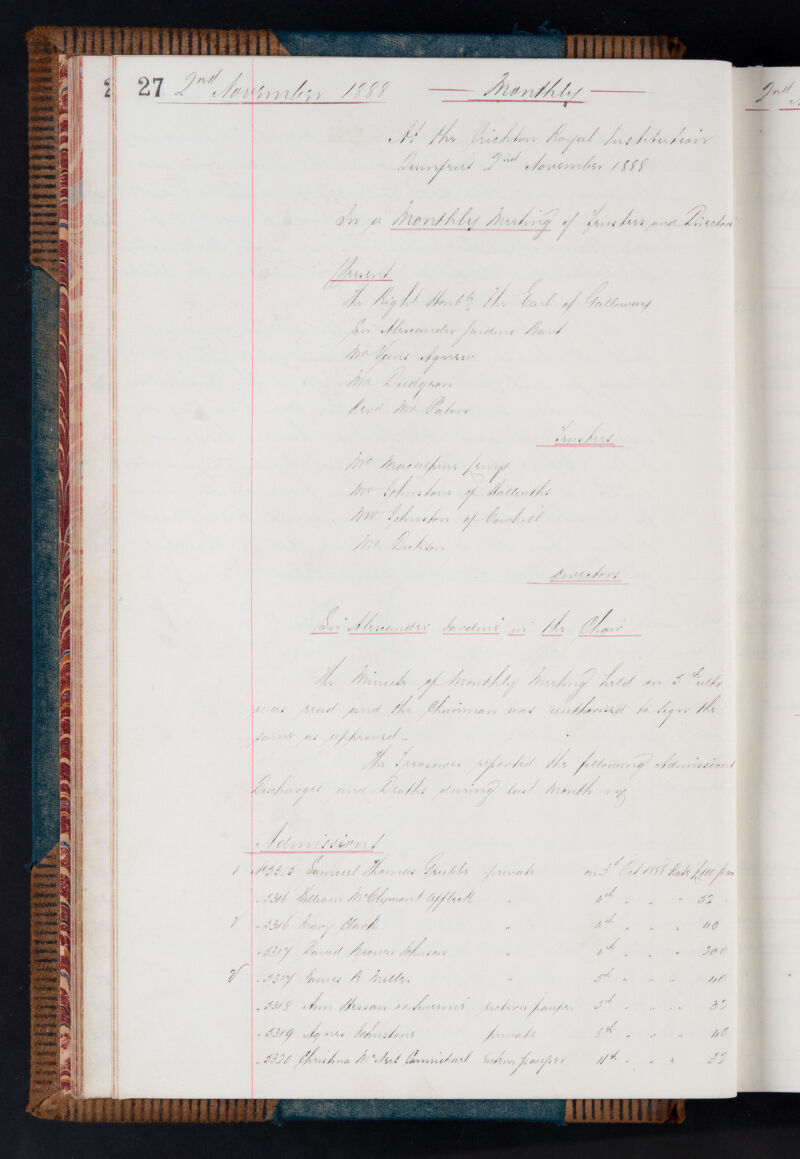 27 2nd November 1888 — Monthly —
2nd
At the Crichton Royal Institution
Dumfries 2nd November 1888
In a Monthly Meeting of Trustees and Directors
Present
The Right Honble the Earl of Galloway
Sir Alexander Jardine Bart
Mr Vans Agnew
Mr Dudgeon
Revd Mr Paton
Trustees
Mr Macalpine Leny
Mr Johnstone of Halleaths
Mr Johnston of Cowhill
Mr Dickson
Directors
Sir Alexander Jardine in the Chair
The Minute of Monthly Meeting held on 5th ulto
was read and the Chairman was authorised to sign the
same as approved –
The Treasurer reported the following Admissions
Discharges and Deaths during last Month viz
Admissions
No 5315 Samuel Thomas Grubb private on 3d Oct 1888 Rate £110 p an
" 5316 William McClymont Affleck " 4th " " " 52 "
" 5316 Mary Clark " 4th " " " 40
" 5317 David Brown Johnson " 4th " " " 300
" 5317 James R Miller " 5th " " " 40
" 5318 Ann Hessan or pauper 5th " " " 32
" 5319 Agnes Johnstone private 8th " " " 40
" 5320 Christina McNeil Carmichael pauper 11th " " " 32